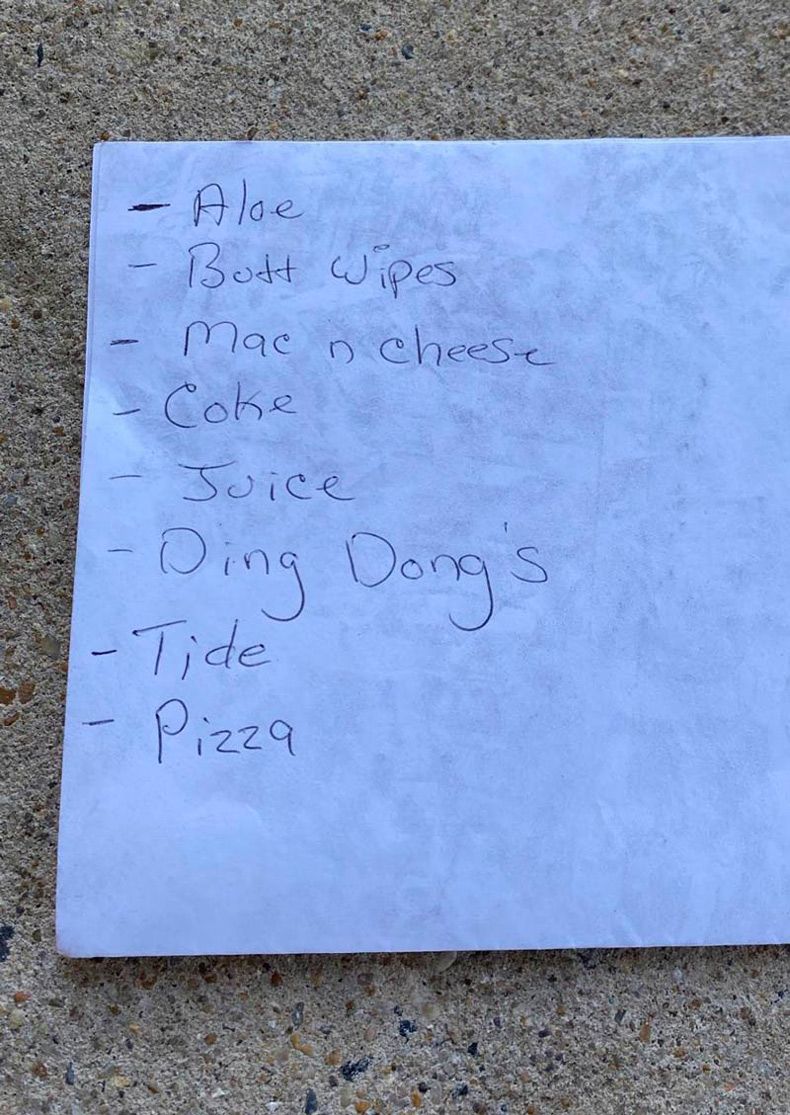 - Aloe
- Butt Wipes
- Mac n cheese
- Coke
- Juice
- Ding Dong's
- Tide
- Pizza